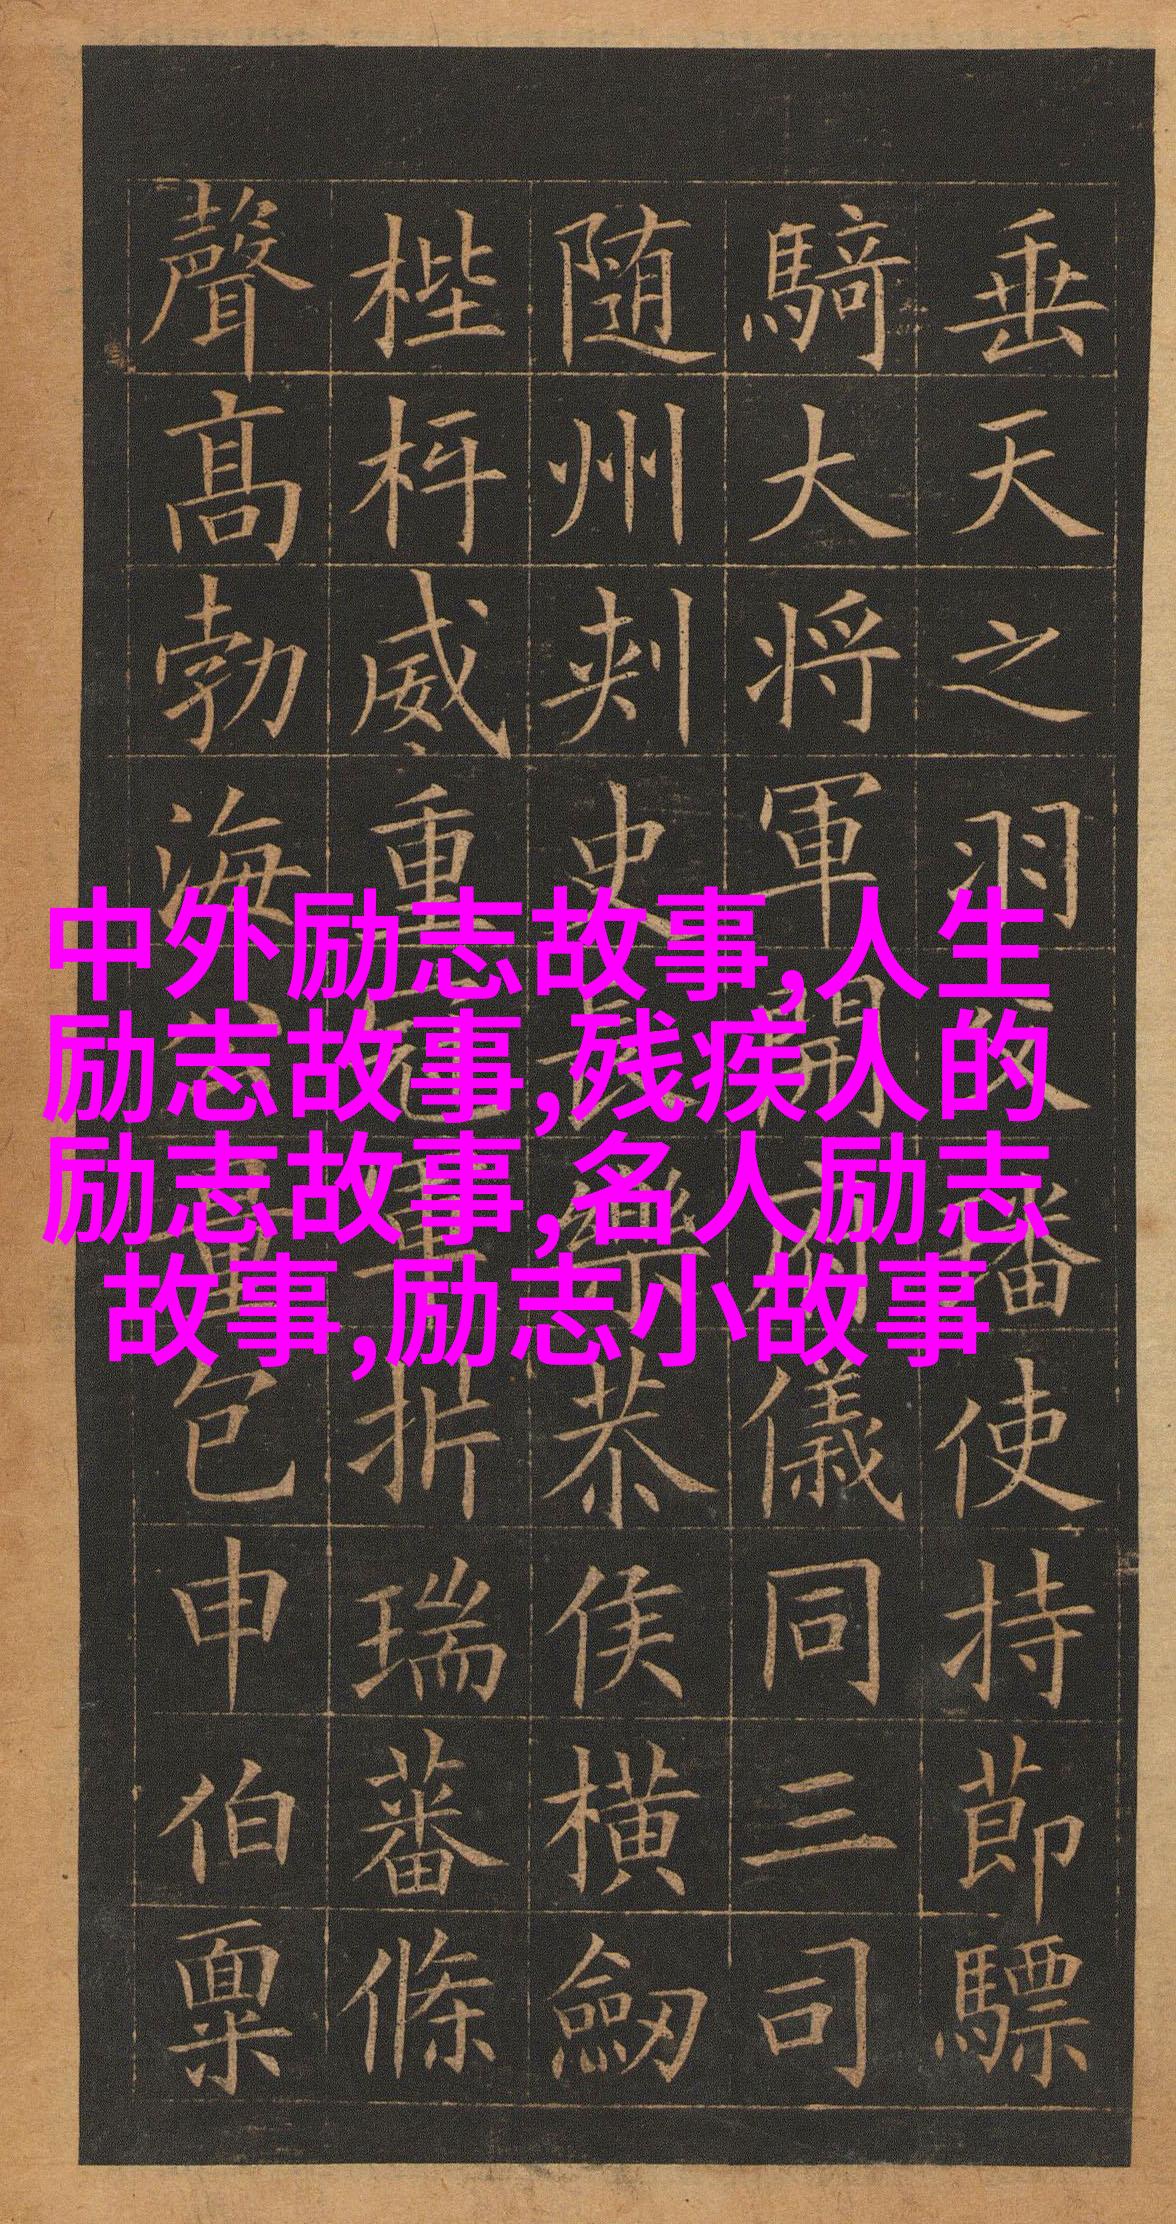 垂天之羽父璠使持節驃
騎大将軍開府儀同三司
随州刾史長樂恭侯橫劒
梐枅威重冠軍折瑞蕃條
聲高勃海公量包申伯稟
中外励志故事,人生
励志故事,残疾人的
励志故事,名人励志
故事,励志小故事